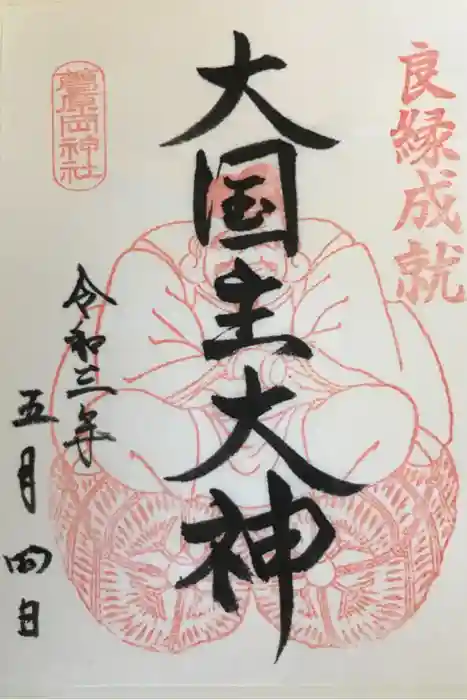 良縁成就
大国主大神
葛原岡神社
令和三年
五月四日